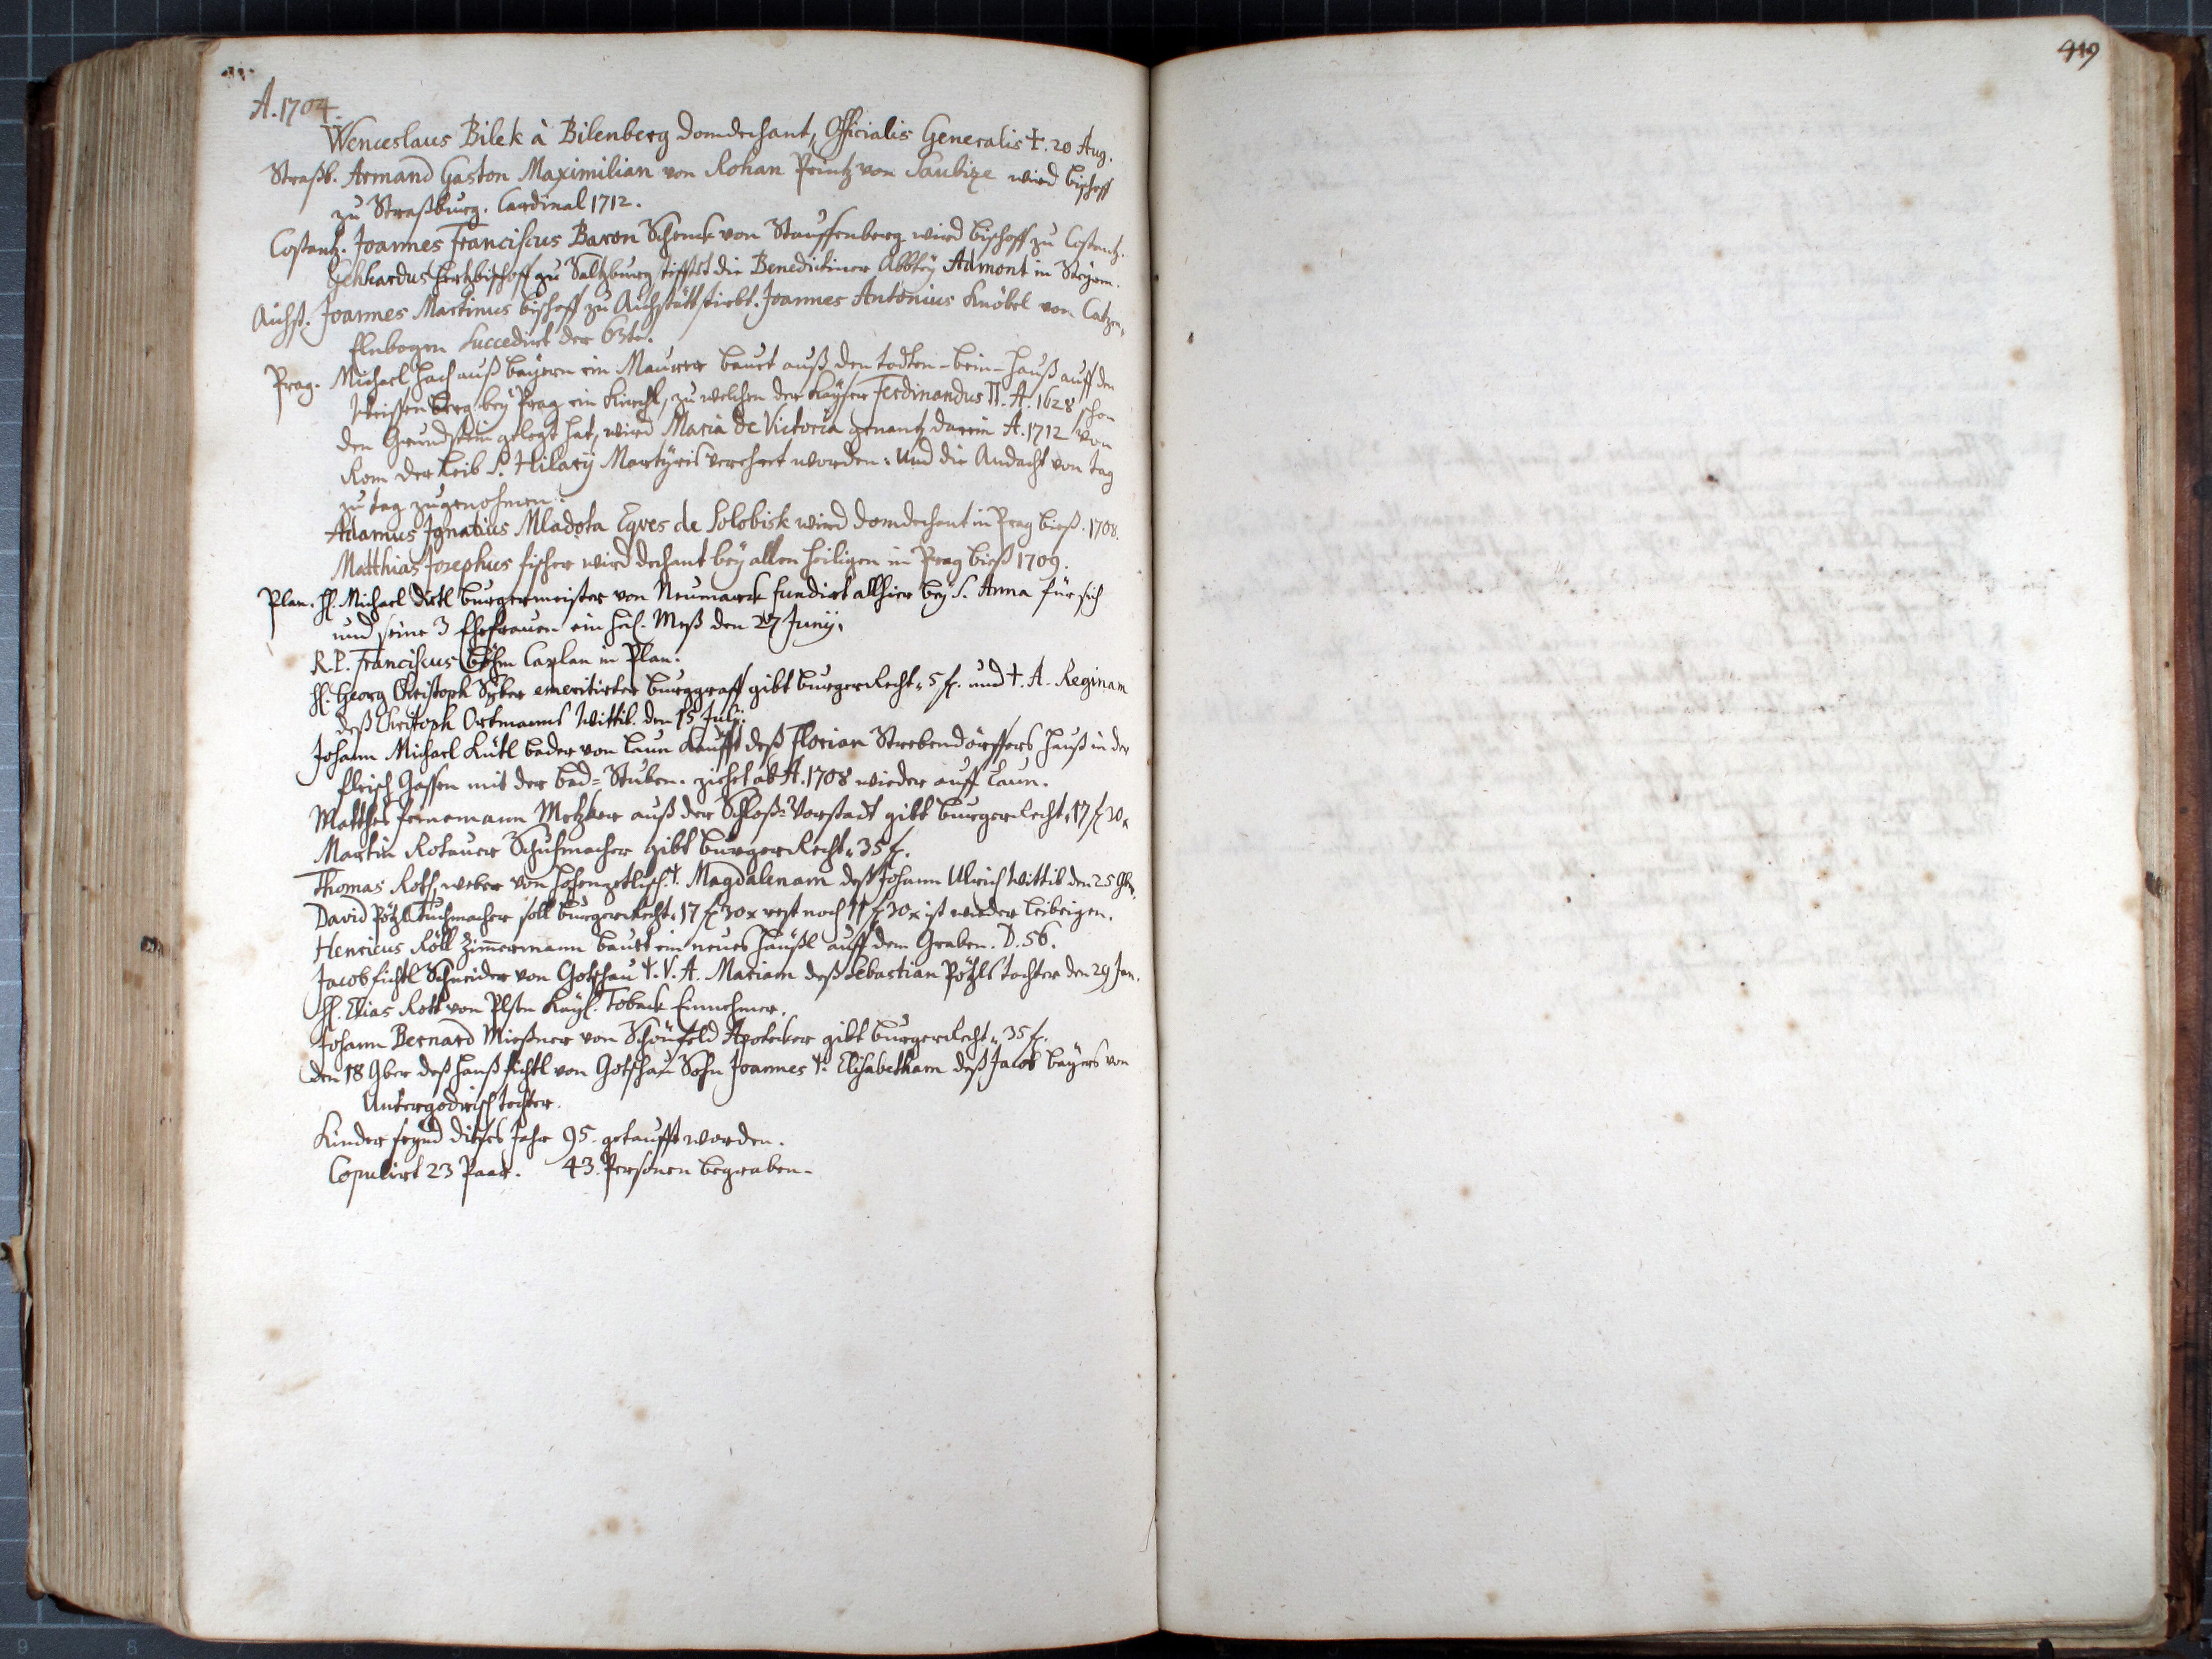 419
A. 1704.
Wenceslaus Bilek à Bilenberg Domdechant, Officialis Generalis ✝. 20 Aug.
Straßb. Armand Gaston Maximilian von Rohan Printz von Soubize wird bischoff
zu Straßburg. Cardinal 1712.
Costantz. Joannes Franciscus Baron Schenck von Stauffenberg wird bischoff zu Costantz.
Gebhardus Ertzbischoff zu Saltzburg stifftet die Benedictiner Abbtey Admont in Steyerm.
Aichst. Joannes Martinus bischoff zu Aichstätt stirbt. Joannes Antonius Knöbel von Catzen„
Elnbogen succedirt der 63te.
Prag. Michael Hach auß bayern ein Maurer bauet auß den todten-bein-hauß auff den
Weissen berg bey Prag ein Kirchl, zu welchen der Kayser Ferdinandus II. A. 1628 schon
den Grundstein gelegt hat, wird Maria de Victoria genant, darein A. 1712 von
Rom der Leib S. Hilarij Martyris verehret worden: Und die Andacht von tag
zu tag zugenohmen.
Adamus Ignatius Mladota Eqves de Solobisk wird Domdechant in Prag bieß. 1708.
Matthias Josephus fischer wird dechant bey allen heiligen in Prag bieß 1709.
Plan. H. Michael Dietl burgermeister von Neumarck fundirt allhier bey S. Anna für sich
und seine 3 Ehefrauen ein heil. Meß den 27 Junij.
R. P. Franciscus böhm Caplan in Plan.
H. Georg Christoph Syber emeritirter burggraff gibt burgerRecht. 5 f. und ✝. A. Reginam
deß Christoph Ortmanns Wittib. den 15 Julij.
Johann Michael Kütl bader von Laun Kaufft deß Florian Strebendörffers hauß in der
fleisch Gassen mit der bad=Stuben. ziehet ab A. 1708 wieder auff Laun.
Matthes fernemann Metzker auß der Schloß=Vorstadt gibt burgerRecht. 17 f 30 x
Martin Rotauer Schuhmacher gibt burgerRecht. 35 f.
Thomas Roth, weber von Hohenzetlisch. ✝. Magdalenam deß Johann Ulrich Wittib den 25 9br.
David Pötzl Tuchmacher soll burgerRecht. 17 f 30 x rest noch 11 f 30 x ist wieder leibeigen.
Henricus Röll Zimmermann bauet ein neues häußl auff dem Graben. D. 56.
Jacob fichtl Schneider von Gotschau ✝. V. A. Mariam deß Sebastian Pötzls tochter den 29 Jan.
H. Elias Rott von Plsen Kayl. Toback Einnehmer.
Johann Bernard Mießner von Schönfeld Apotecker gibt burgerRecht. 35 f.
den 18 9ber deß Hanß fichtl von Gotschau Sohn Joannes ✝. Elisabetham deß Jacob bayers von
Untergodrisch tochter.
Kinder seynd dieses Jahr 95. getaufft worden.
Copulirt 23 Paar. 43. Personen begraben.